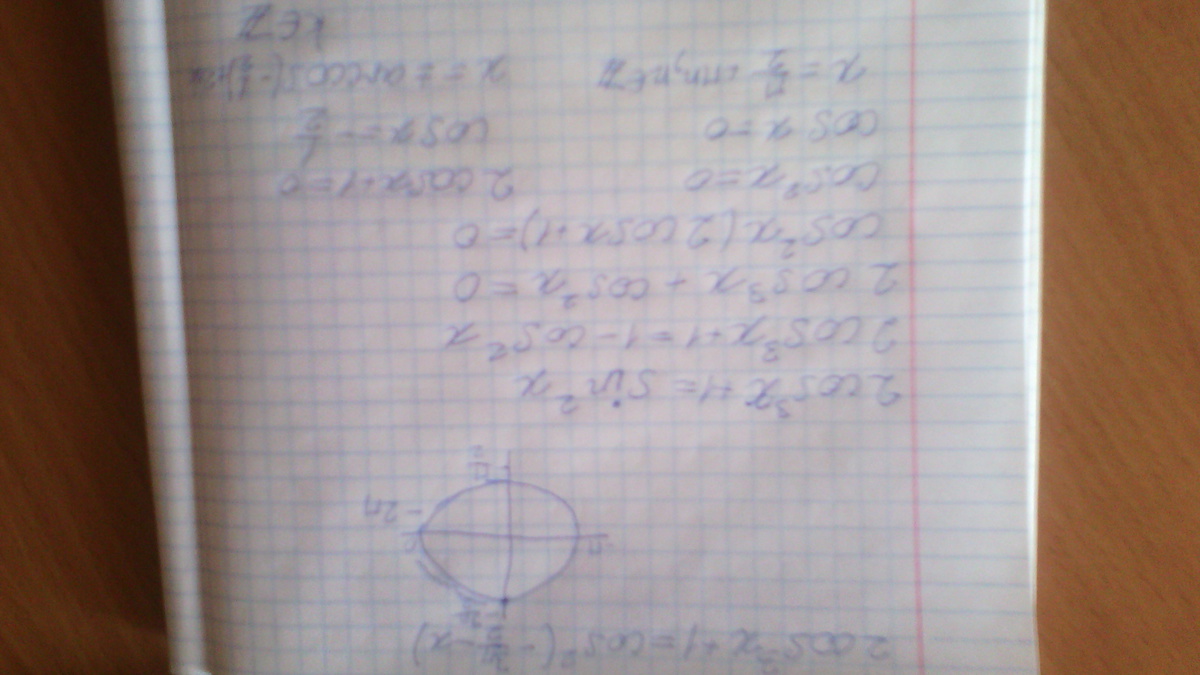 2cos³x+1=cos²(-3π/2-x)
-3π/2
-π 0
-2π
-π/2
2cos³x+1=sin²x
2cos³x+1=1-cos²x
2cos³x+cos²x=0
cos²x(2cosx+1)=0
cos²x=0 2cosx+1=0
cosx=0 cosx=-1/2
x=π/2+πn, n∈Z x=±arccos(-1/2)+
k∈Z